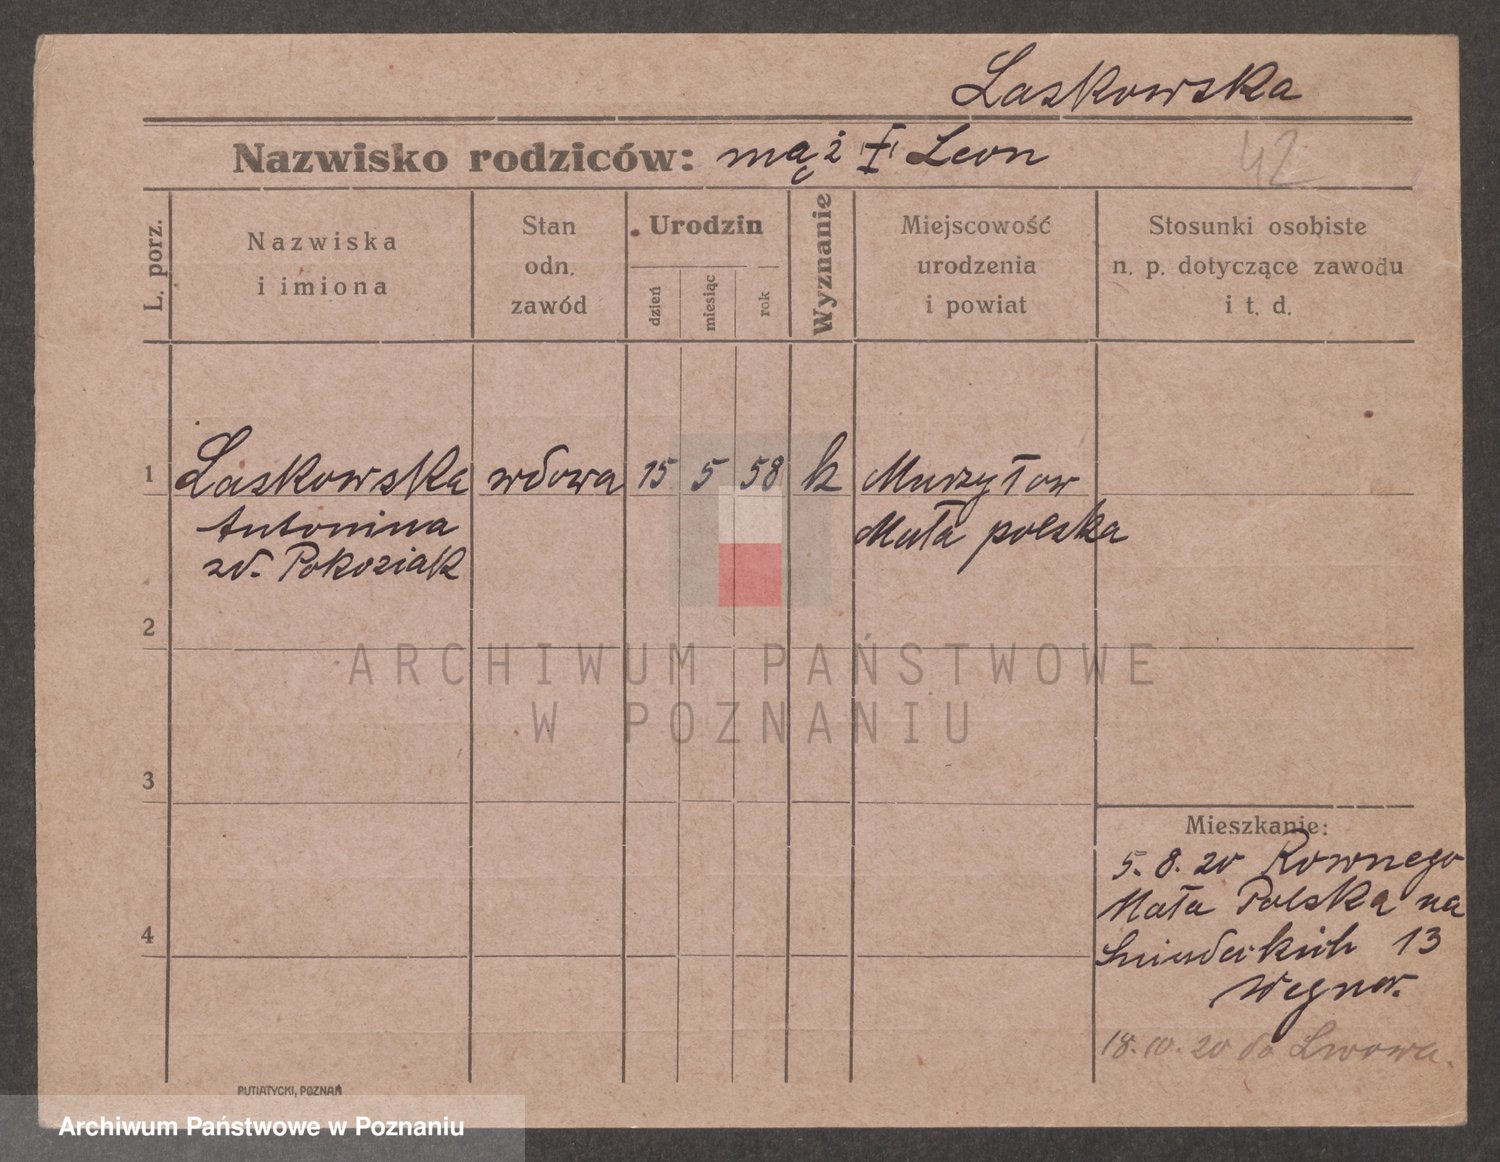 Laskowska
Nazwisko rodziców: mąż I Leon
42
L. porz.
Nazwiska
i imiona
Stan
odn.
zawód
Urodzin
dzień
miesiąc
rok
Wyznanie
Miejscowość
urodzenia
i powiat
Stosunki osobiste
n. p. dotyczące zawodu
i t. d.
1 Laskowska wdowa 15 5 58 k Murzyłow
Antonina Mała polska
zd. Pokoziak
2
ARCHIWUM PAŃSTWOWE
W POZNANIU
3
Mieszkanie:
5. 8. 20 Rownego
Mała Polska na
Śniadeckich 13
Wegner.
4
18. 10. 20 do Lwowa.
PUTIATYCKI, POZNAŃ
Archiwum Państwowe w Poznaniu